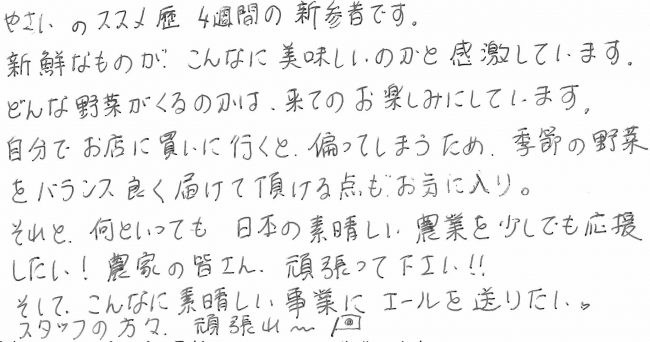 やさいのススメ歴 4週間の新参者です。
新鮮なものが、こんなに美味しいのかと感激しています。
どんな野菜がくるのかは、来てのお楽しみにしています。
自分でお店に買いに行くと、偏ってしまうため、季節の野菜
をバランス良く届けて頂ける点もお気に入り。
それと、何といっても 日本の素晴しい農業を少しでも応援
したい！農家の皆さん、頑張って下さい!!
そして、こんなに素晴しい事業にエールを送りたい。
スタッフの方々、頑張れ～